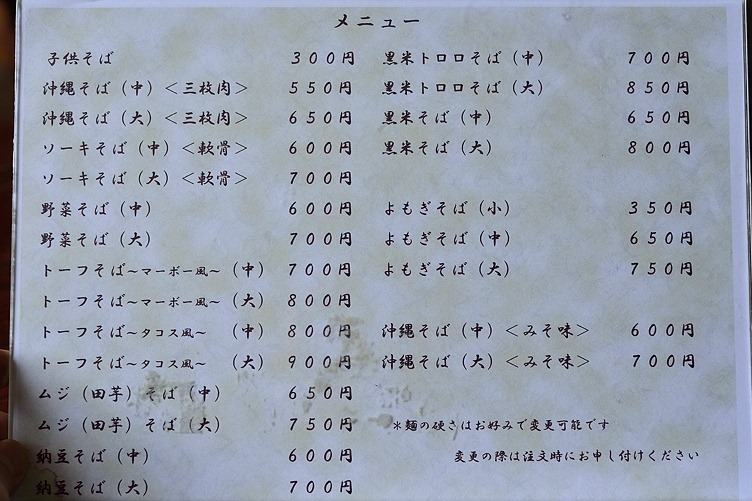 メニュー
子供そば 300円
沖縄そば（中）＜三枚肉＞ 550円
沖縄そば（大）＜三枚肉＞ 650円
ソーキそば（中）＜軟骨＞ 600円
ソーキそば（大）＜軟骨＞ 700円
野菜そば（中） 600円
野菜そば（大） 700円
トーフそば～マーボー風～（中） 700円
トーフそば～マーボー風～（大） 800円
トーフそば～タコス風～（中） 800円
トーフそば～タコス風～（大） 900円
ムジ（田芋）そば（中） 650円
ムジ（田芋）そば（大） 750円
納豆そば（中） 600円
納豆そば（大） 700円
黒米トロロそば（中） 700円
黒米トロロそば（大） 850円
黒米そば（中） 650円
黒米そば（大） 800円
よもぎそば（小） 350円
よもぎそば（中） 650円
よもぎそば（大） 750円
沖縄そば（中）＜みそ味＞ 600円
沖縄そば（大）＜みそ味＞ 700円
＊麺の硬さはお好みで変更可能です
変更の際は注文時にお申し付けください